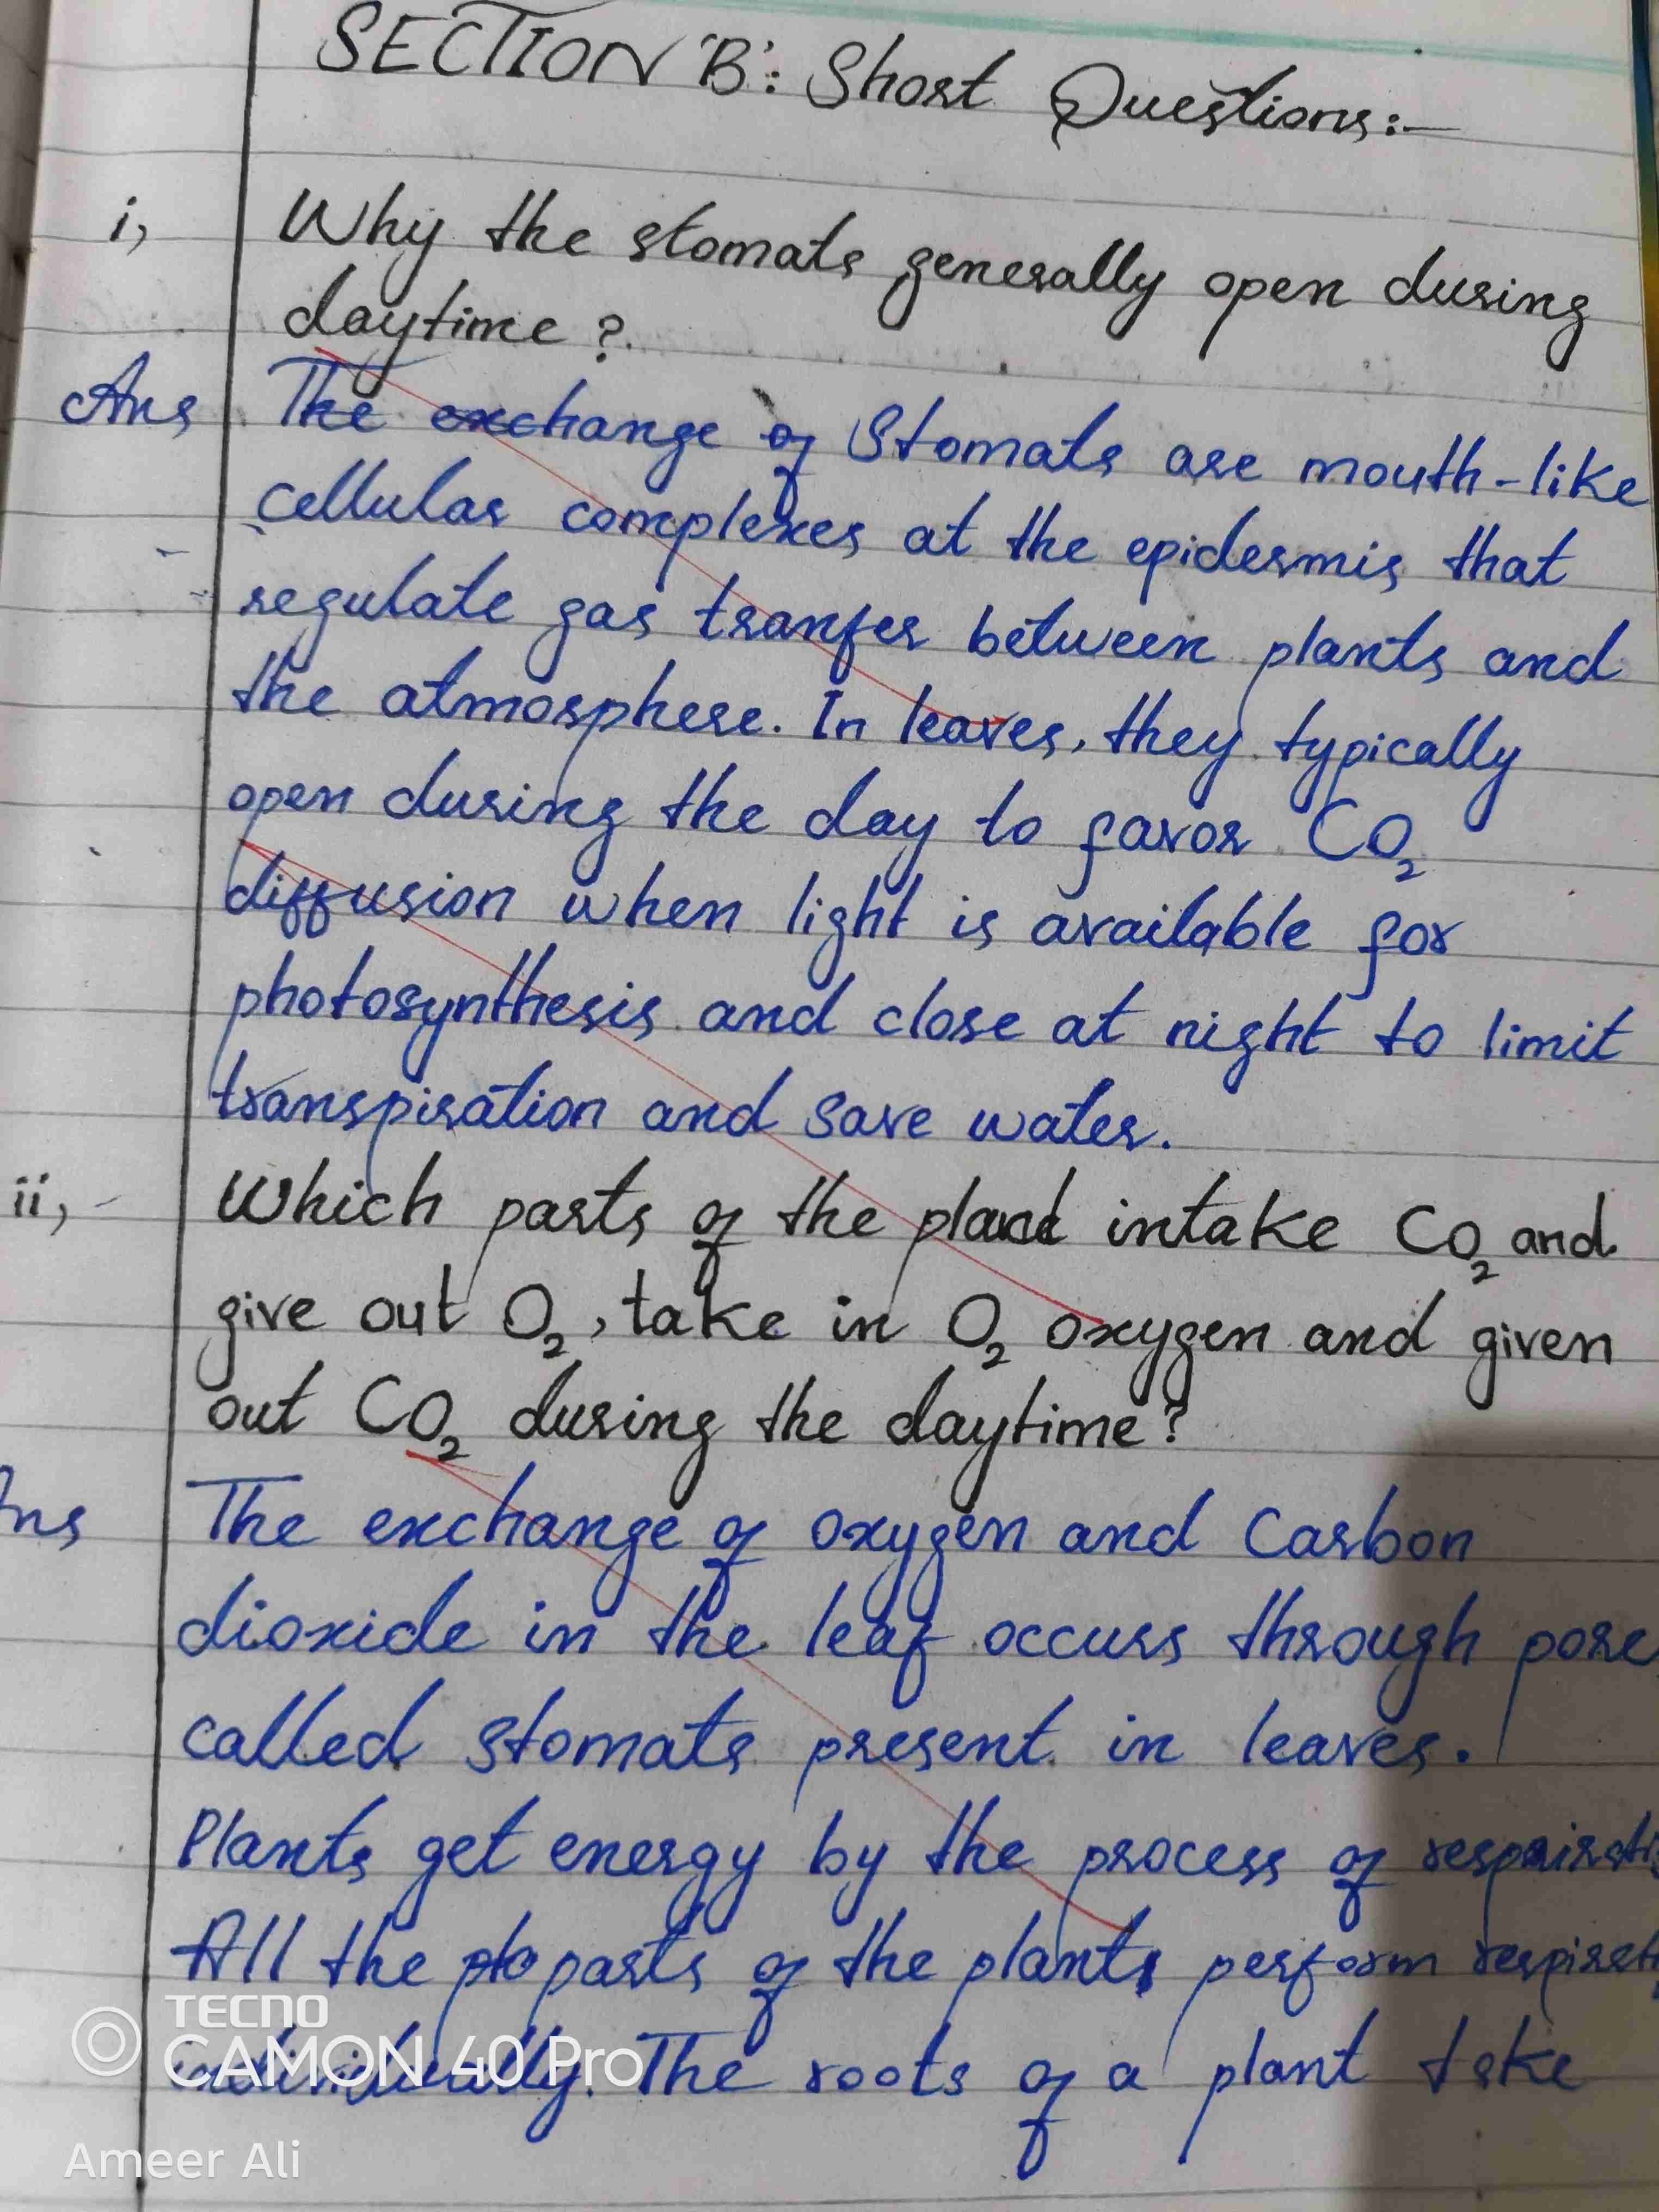 SECTION 'B': Short Questions:-
i, Why the stomats generally open during
daytime?.
Ans The exchange of Stomats are mouth-like
cellular complexes at the epidermis that
regulate gas tranfer between plants and
the atmosphere. In leaves, they typically
open during the day to favor CO₂
diffusion when light is available for
photosynthesis and close at night to limit
transpiration and save water.
ii, Which parts of the plant intake CO₂ and
give out O₂, take in O₂ oxygen and given
out CO₂ during the daytime?
Ans The exchange of oxygen and Carbon
dioxide in the leaf occurs through pore
called stomats present in leaves.
Plants get energy by the process of
All the parts of the plants perform
individually. The roots of a plant take
TECNO
CAMON 40 Pro
Ameer Ali